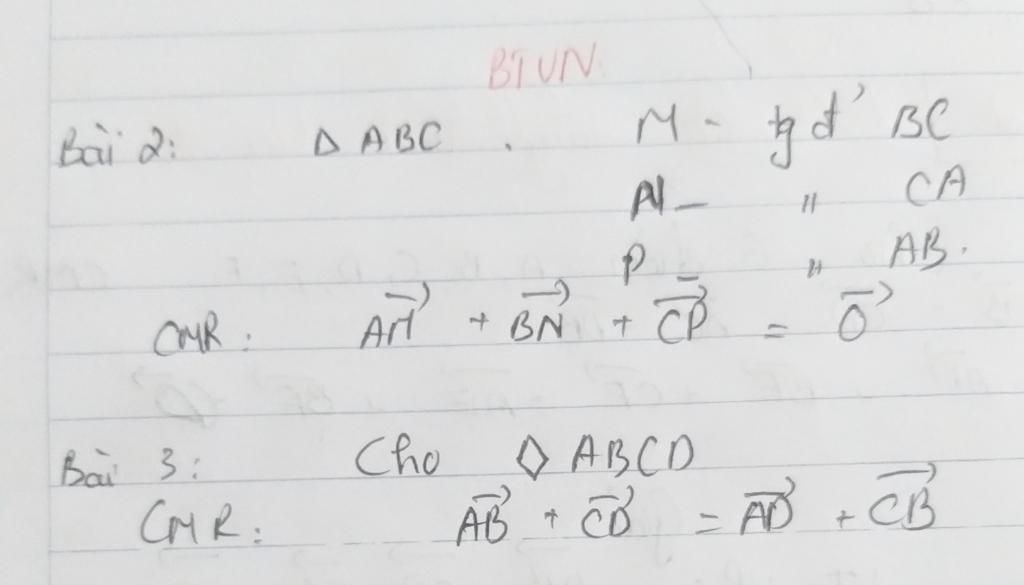 BTVN
Bài 2: Δ ABC . M - tg đ' BC
N - " CA
P - " AB.
CMR: \overrightarrow{AM} + \overrightarrow{BN} + \overrightarrow{CP} = \overrightarrow{0}
Bài 3: Cho ◊ ABCD
CMR: \overrightarrow{AB} + \overrightarrow{CD} = \overrightarrow{AD} + \overrightarrow{CB}